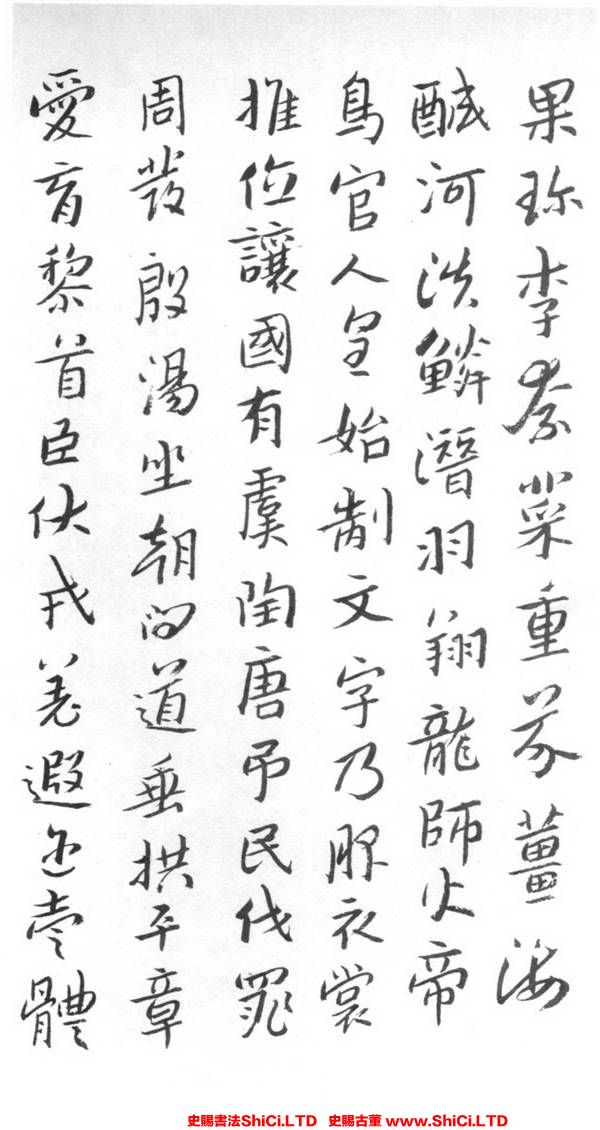 果珍李柰菜重芥薑海
醎河淡鱗潛羽翔龍師火帝
鳥官人皇始制文字乃服衣裳
推位讓國有虞陶唐弔民伐罪
周發殷湯坐朝問道垂拱平章
愛育黎首臣伏戎羌遐迩壹體
史賜書法ShiCi.LTD 史賜古董 www.ShiCi.LTD